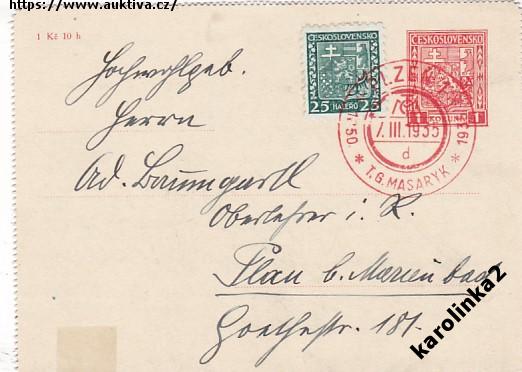 https://www.auktiva.cz/
1 Kč 10 h
ČESKOSLOVENSKO
25 HALÉŘŮ 25
ČESKOSLOVENSKO
1 KORUNA 1
7.III.1935
d
1850 * T.G. MASARYK * 193
Hochwohlgeb.
Herrn
Ad. Baumgartl
Oberlehrer i. R.
Plan b. Marienbad
Goethestr. 181.
karolinka2